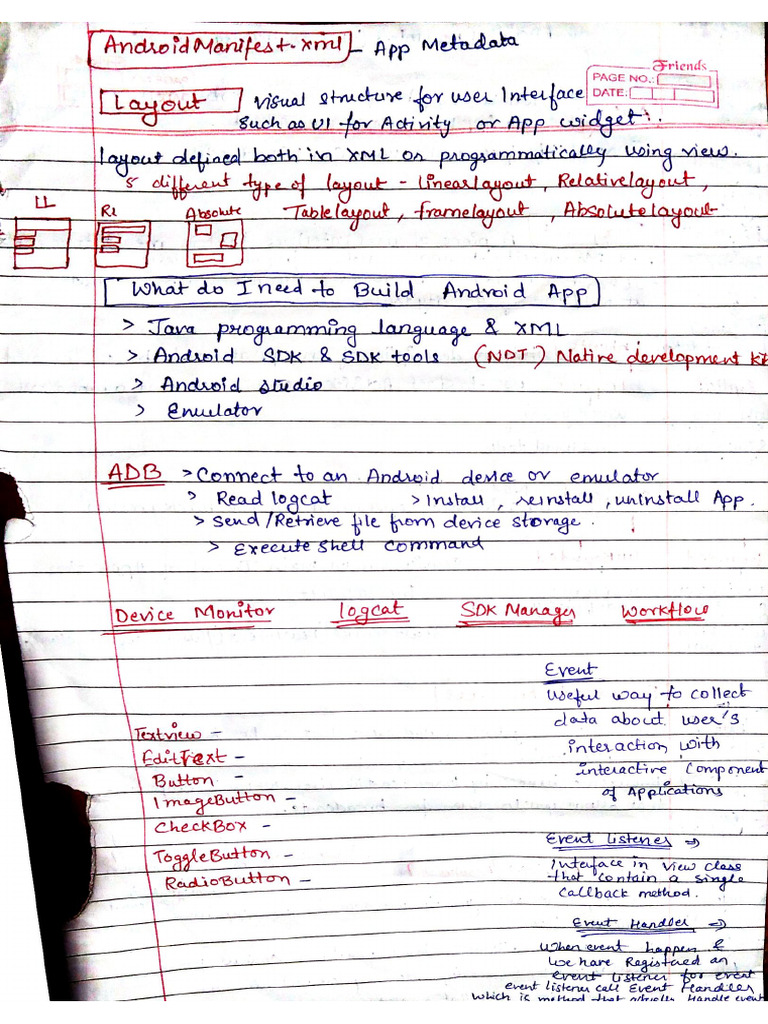 AndroidManifest.xml - App Metadata
Friends
PAGE NO.:
DATE:
Layout visual structure for user Interface
such as UI for Activity or App widget.
Layout defined both in XML or programmatically using view.
5 different type of layout - linearlayout, Relativelayout,
Tablelayout, framelayout, Absolutelayout
LL
RL
Absolute
What do I need to Build Android App
> Java programming language & XML
> Android SDK & SDK tools (NDT) Native development kit
> Android studio
> Emulator
ADB > Connect to an Android device or emulator
> Read logcat > Install, reinstall, uninstall App.
> Send/Retrieve file from device storage.
> Execute shell command
Device Monitor logcat SDK Manager Workflow
Event
Useful way to collect
data about user's
interaction with
interactive component
of Applications
Textview -
EditText -
Button -
ImageButton -
CheckBox -
ToggleButton -
RadioButton -
Event Listener →
Interface in view class
that contain a single
callback method.
Event Handler →
When event happen &
we have Registered an
event listener for event
event listener call Event Handler
which is method that actually Handle event